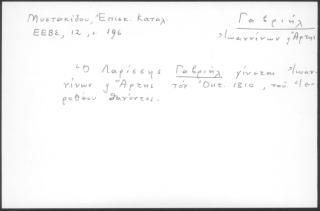 Μυστακίδου, Ἐπισκ. Κατάλ.
ΕΕΒΣ, 12, σ. 196
Γαβριήλ
Ἰωαννίνων ἢ Ἄρτης
"Ὁ Λαρίσσης Γαβριήλ γίνεται Ἰωαν-
νίνων ἢ Ἄρτης τόν Ὀκτ. 1810, τοῦ Ἱε-
ροθέου θανόντος.